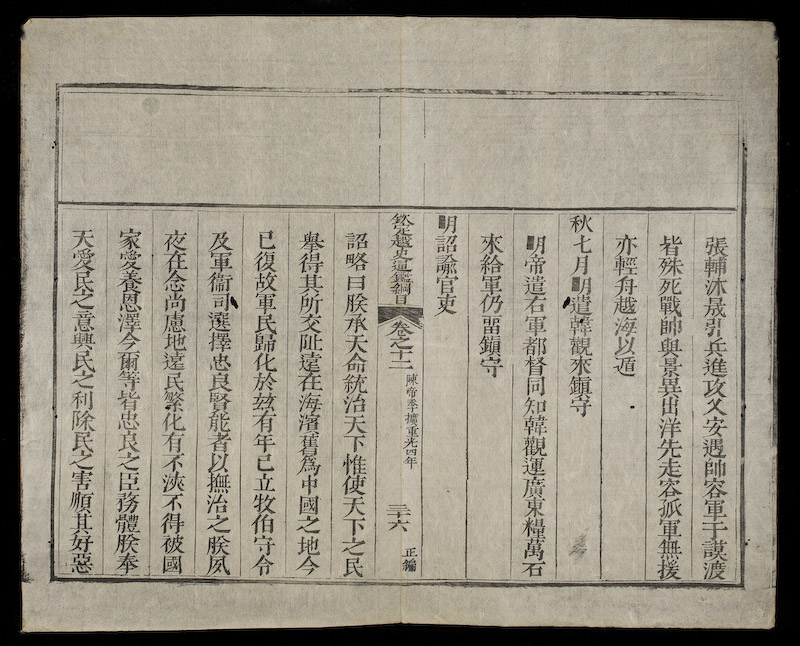 張輔沐晟引兵進攻乂安遇帥容軍于謨渡
皆殊死戰帥與景異出洋先走容孤軍無援
亦輕舟越海以遁
秋七月明遣韓觀來鎮守
明帝遣右軍都督同知韓觀運廣東糧萬石
來給軍仍畱鎮守
明詔諭官吏
欽定越史通鑑綱目 卷之十二 陳帝季擴重光四年 三十六 正編
詔略曰朕承天命統治天下惟使天下之民
舉得其所交阯遠在海濱舊爲中國之地今
已復故軍民歸化於茲有年已立牧伯守令
及軍衞司選擇忠良賢能者以撫治之朕夙
夜在念尚慮地遠民繁化有不浹不得被國
家愛養恩澤今爾等皆忠良之臣務體朕奉
天愛民之意興民之利除民之害順其好惡